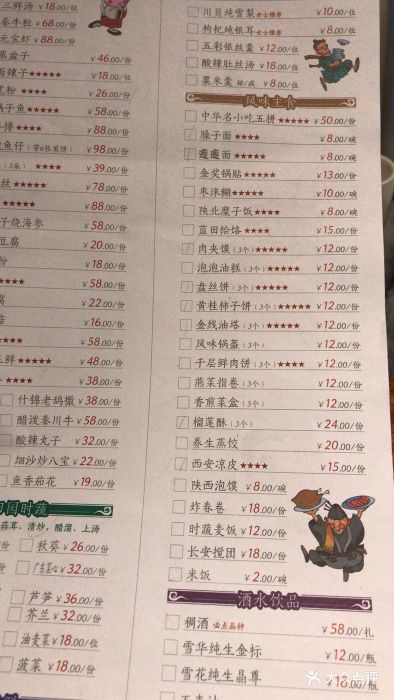 三鲜汤 ￥18.00/位
泰牛粒 ￥68.00/份
元宝虾 ￥88.00/份
蒸盆子 ￥46.00/份
面辣子★★★★★ ￥18.00/位
宽粉 ★★★★ ￥26.00/份
锅子鱼★★★★★ ￥58.00/份
牛排 ★★★★ ￥88.00/份
鱼仔（带6张煎饼） ￥98.00/份
（3条）★★★★ ￥39.00/份
丝★★★★★ ￥78.00/份
★★★★★ ￥88.00/份
子烧海参 ￥58.00/份
豆腐 ￥20.00/份
粉 ￥18.00/份
★★★★★ ￥58.00/份
腐 ￥22.00/份
￥16.00/份
★★★★★ ￥58.00/份
三鲜★★★★★ ￥48.00/份
★★★★ ￥38.00/份
什锦老鸹撒 ￥38.00/份
醋泼秦川牛 ￥58.00/份
酸辣丸子 ￥32.00/份
细沙炒八宝 ￥22.00/份
鱼香茄花 ￥19.00/份
田园时蔬
蒜茸、清炒、醋溜、上汤
秋葵 ￥26.00/份
广东菜心 ￥32.00/份
芦笋 ￥36.00/份
芥兰 ￥32.00/份
油麦菜 ￥18.00/份
菠菜 ￥18.00/份
川贝炖雪梨 女士推荐 ￥10.00/位
枸杞炖银耳 女士推荐 ￥8.00/位
五彩银丝羹 ￥12.00/位
酸辣肚丝汤 ￥18.00/位
粟米羹 甜/咸 ￥8.00/位
风味主食
中华名小吃五拼★★★★★ ￥50.00/份
臊子面★★★★ ￥8.00/碗
面★★★★ ￥8.00/碗
金奖锅贴★★★★★ ￥13.00/份
枣沫糊★★★★★ ￥10.00/碗
陕北糜子饭★★★★ ￥8.00/碗
蓝田饸饹★★★★ ￥15.00/份
肉夹馍（3个）★★★★★ ￥12.00/份
泡泡油糕（3个）★★★★★ ￥12.00/份
盘丝饼（3个）★★★★★ ￥12.00/份
黄桂柿子饼（3个）★★★★ ￥12.00/份
金线油塔（3个）★★★★ ￥12.00/份
风味锅盔（3个） ￥12.00/份
千层鲜肉饼（3个）★★★★ ￥18.00/份
燕菜指卷（3个） ￥12.00/份
香煎菜盒（3个） ￥12.00/份
榴莲酥（3个） ￥24.00/份
养生蒸饺 ￥20.00/份
西安凉皮★★★★ ￥15.00/份
陕西泡馍 ￥8.00/碗
炸春卷 ￥18.00/份
时蔬麦饭 ￥12.00/份
长安搅团 ￥18.00/份
米饭 ￥2.00/碗
酒水饮品
稠酒 必点品种 ￥58.00/扎
雪华纯生金标 ￥12.00/瓶
雪花纯生晶尊 ￥18.00/瓶
大众点评